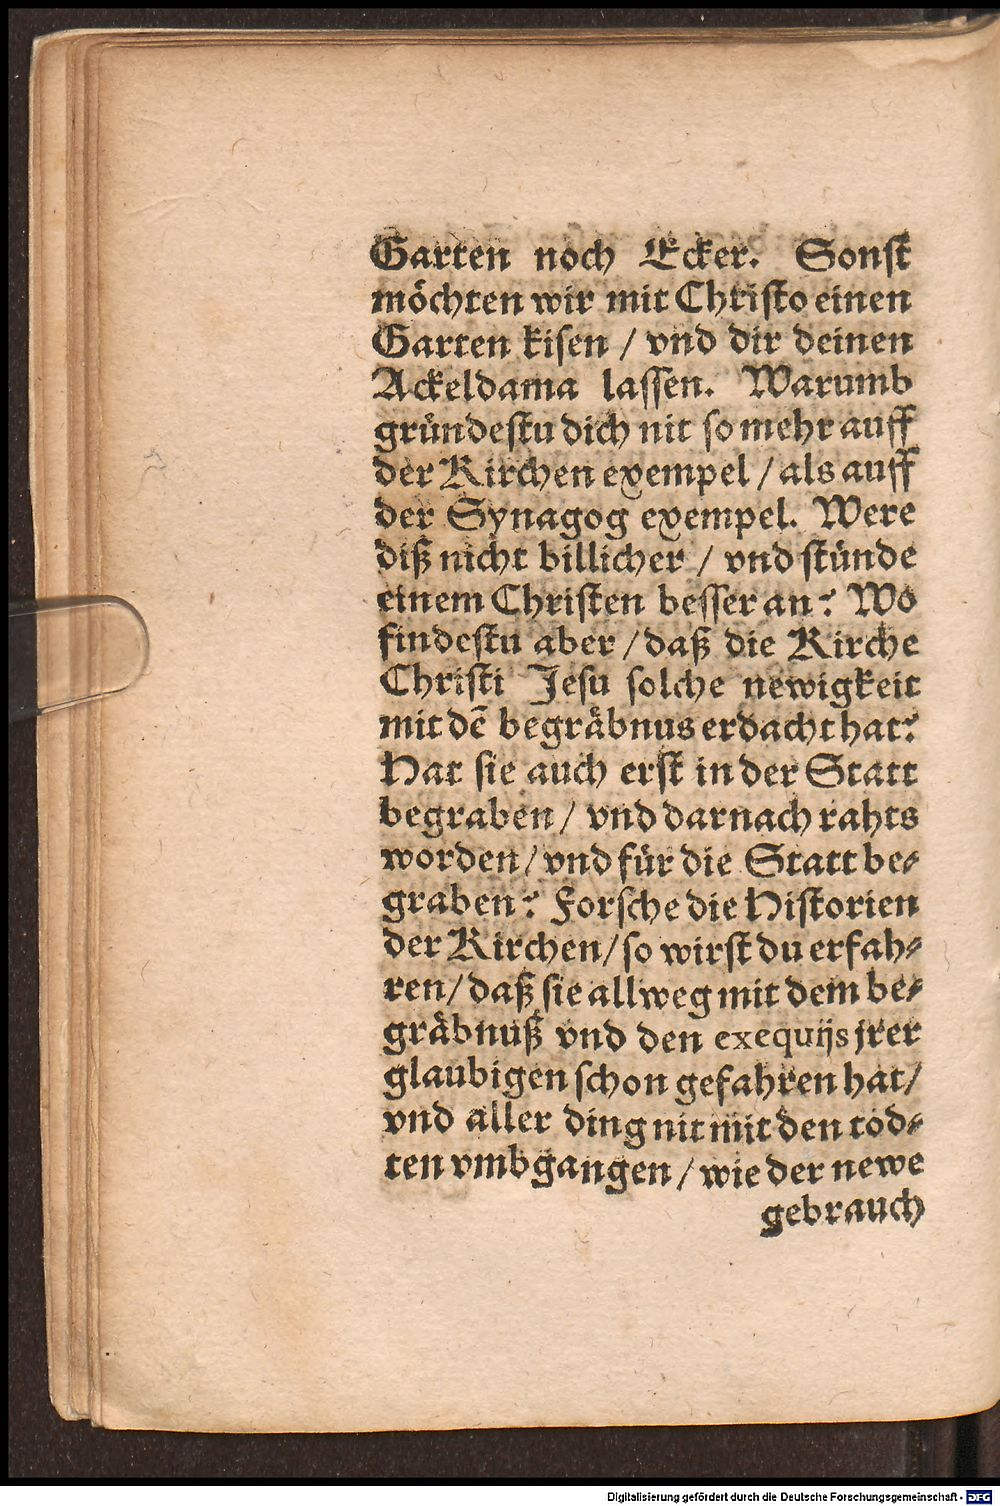 Garten noch Ecker. Sonst
möchten wir mit Christo einen
Garten kisen / vnd dir deinen
Ackeldama lassen. Warumb
gründestu dich nit so mehr auff
der Kirchen exempel / als auff
der Synagog exempel. Were
diß nicht billicher / vnd stünde
einem Christen besser an? Wo
findestu aber / daß die Kirche
Christi Jesu solche newigkeit
mit dē begräbnus erdacht hat?
Hat sie auch erst in der Statt
begraben / vnd darnach rahts
worden / vnd für die Statt be⸗
graben? Forsche die Historien
der Kirchen / so wirst du erfah⸗
ren / daß sie allweg mit dem be⸗
gräbnuß vnd den exequijs jrer
glaubigen schon gefahren hat /
vnd aller ding nit mit den tod⸗
ten vmbgangen / wie der newe
gebrauch
Digitalisierung gefördert durch die Deutsche Forschungsgemeinschaft - DFG